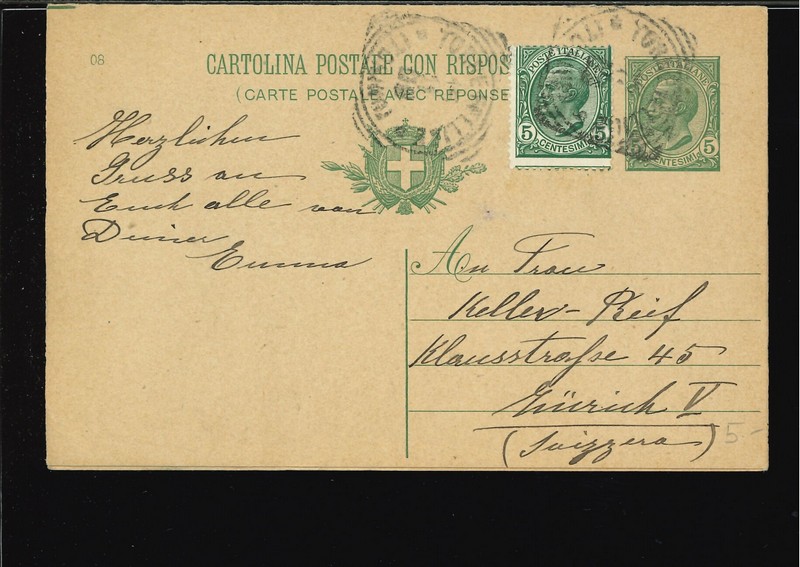 08
CARTOLINA POSTALE CON RISPOS
(CARTE POSTALE AVEC RÉPONSE
POSTE ITALIANE
5 5
CENTESIMI
POSTE ITALIANE
5 5
CENTESIMI
Herzlichen
Gruss an
Euch alle von
Deiner
Emma
An Frau
Keller-Reif
Klausstraße 45
Zürich V
(Svizzera)
5.-